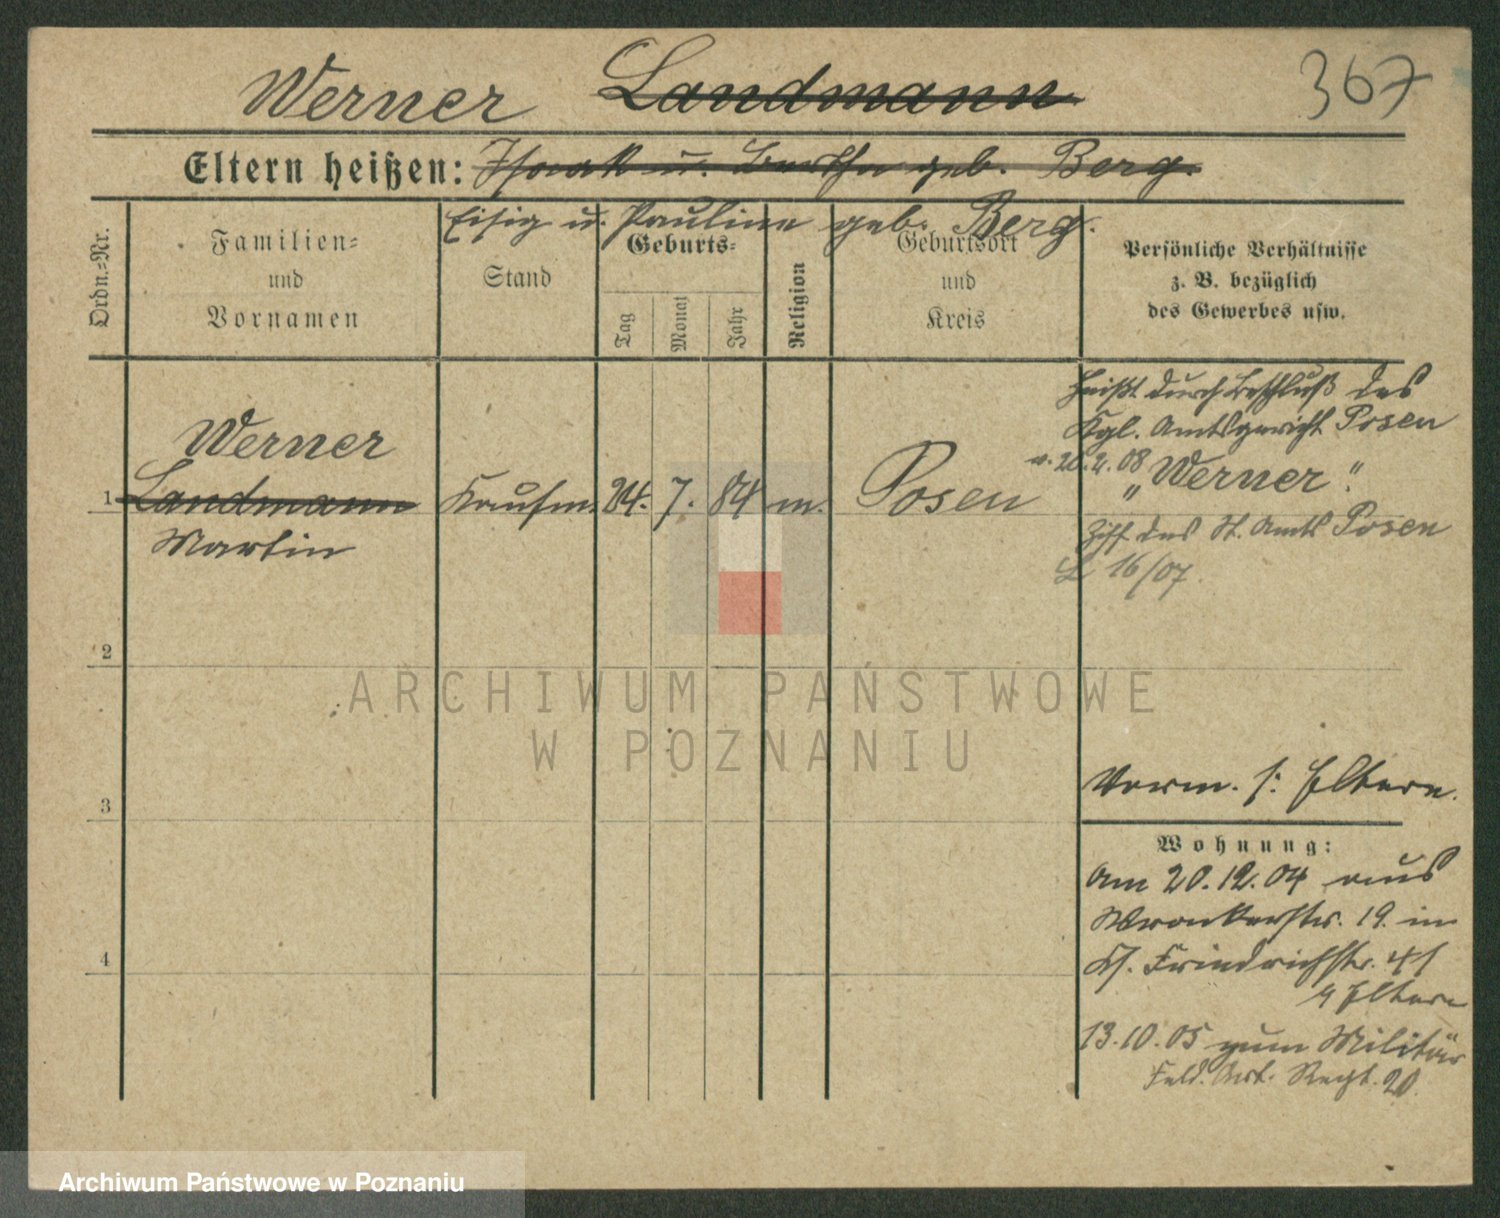 Werner Landmann 367
Eltern heißen: Isaak u. Bertha geb. Berg.
Eisig u. Pauline geb. Berg.
Ordn.=Nr.
Familien=
und
Vornamen
Stand
Geburts=
Tag
Monat
Jahr
Religion
Geburtsort
und
Kreis
Persönliche Verhältnisse
z. B. bezüglich
des Gewerbes usw.
Werner
1 Landmann Kaufm. 24. 7. 84 m. Posen
Martin
heißt durch Beschluß des
Kgl. Amtsgericht Posen
v. 20.2.08 „Werner“.
des St. Amts Posen
L 16/07.
2
3
4
ARCHIWUM PAŃSTWOWE
W POZNANIU
Vorm. s: Eltern.
Wohnung:
Am 20.12.04 aus
Wronkerstr. 19. in
Friedrichstr.
Eltern
13.10.05 zum Militär
Feld. Art. Regt. 20.
Archiwum Państwowe w Poznaniu